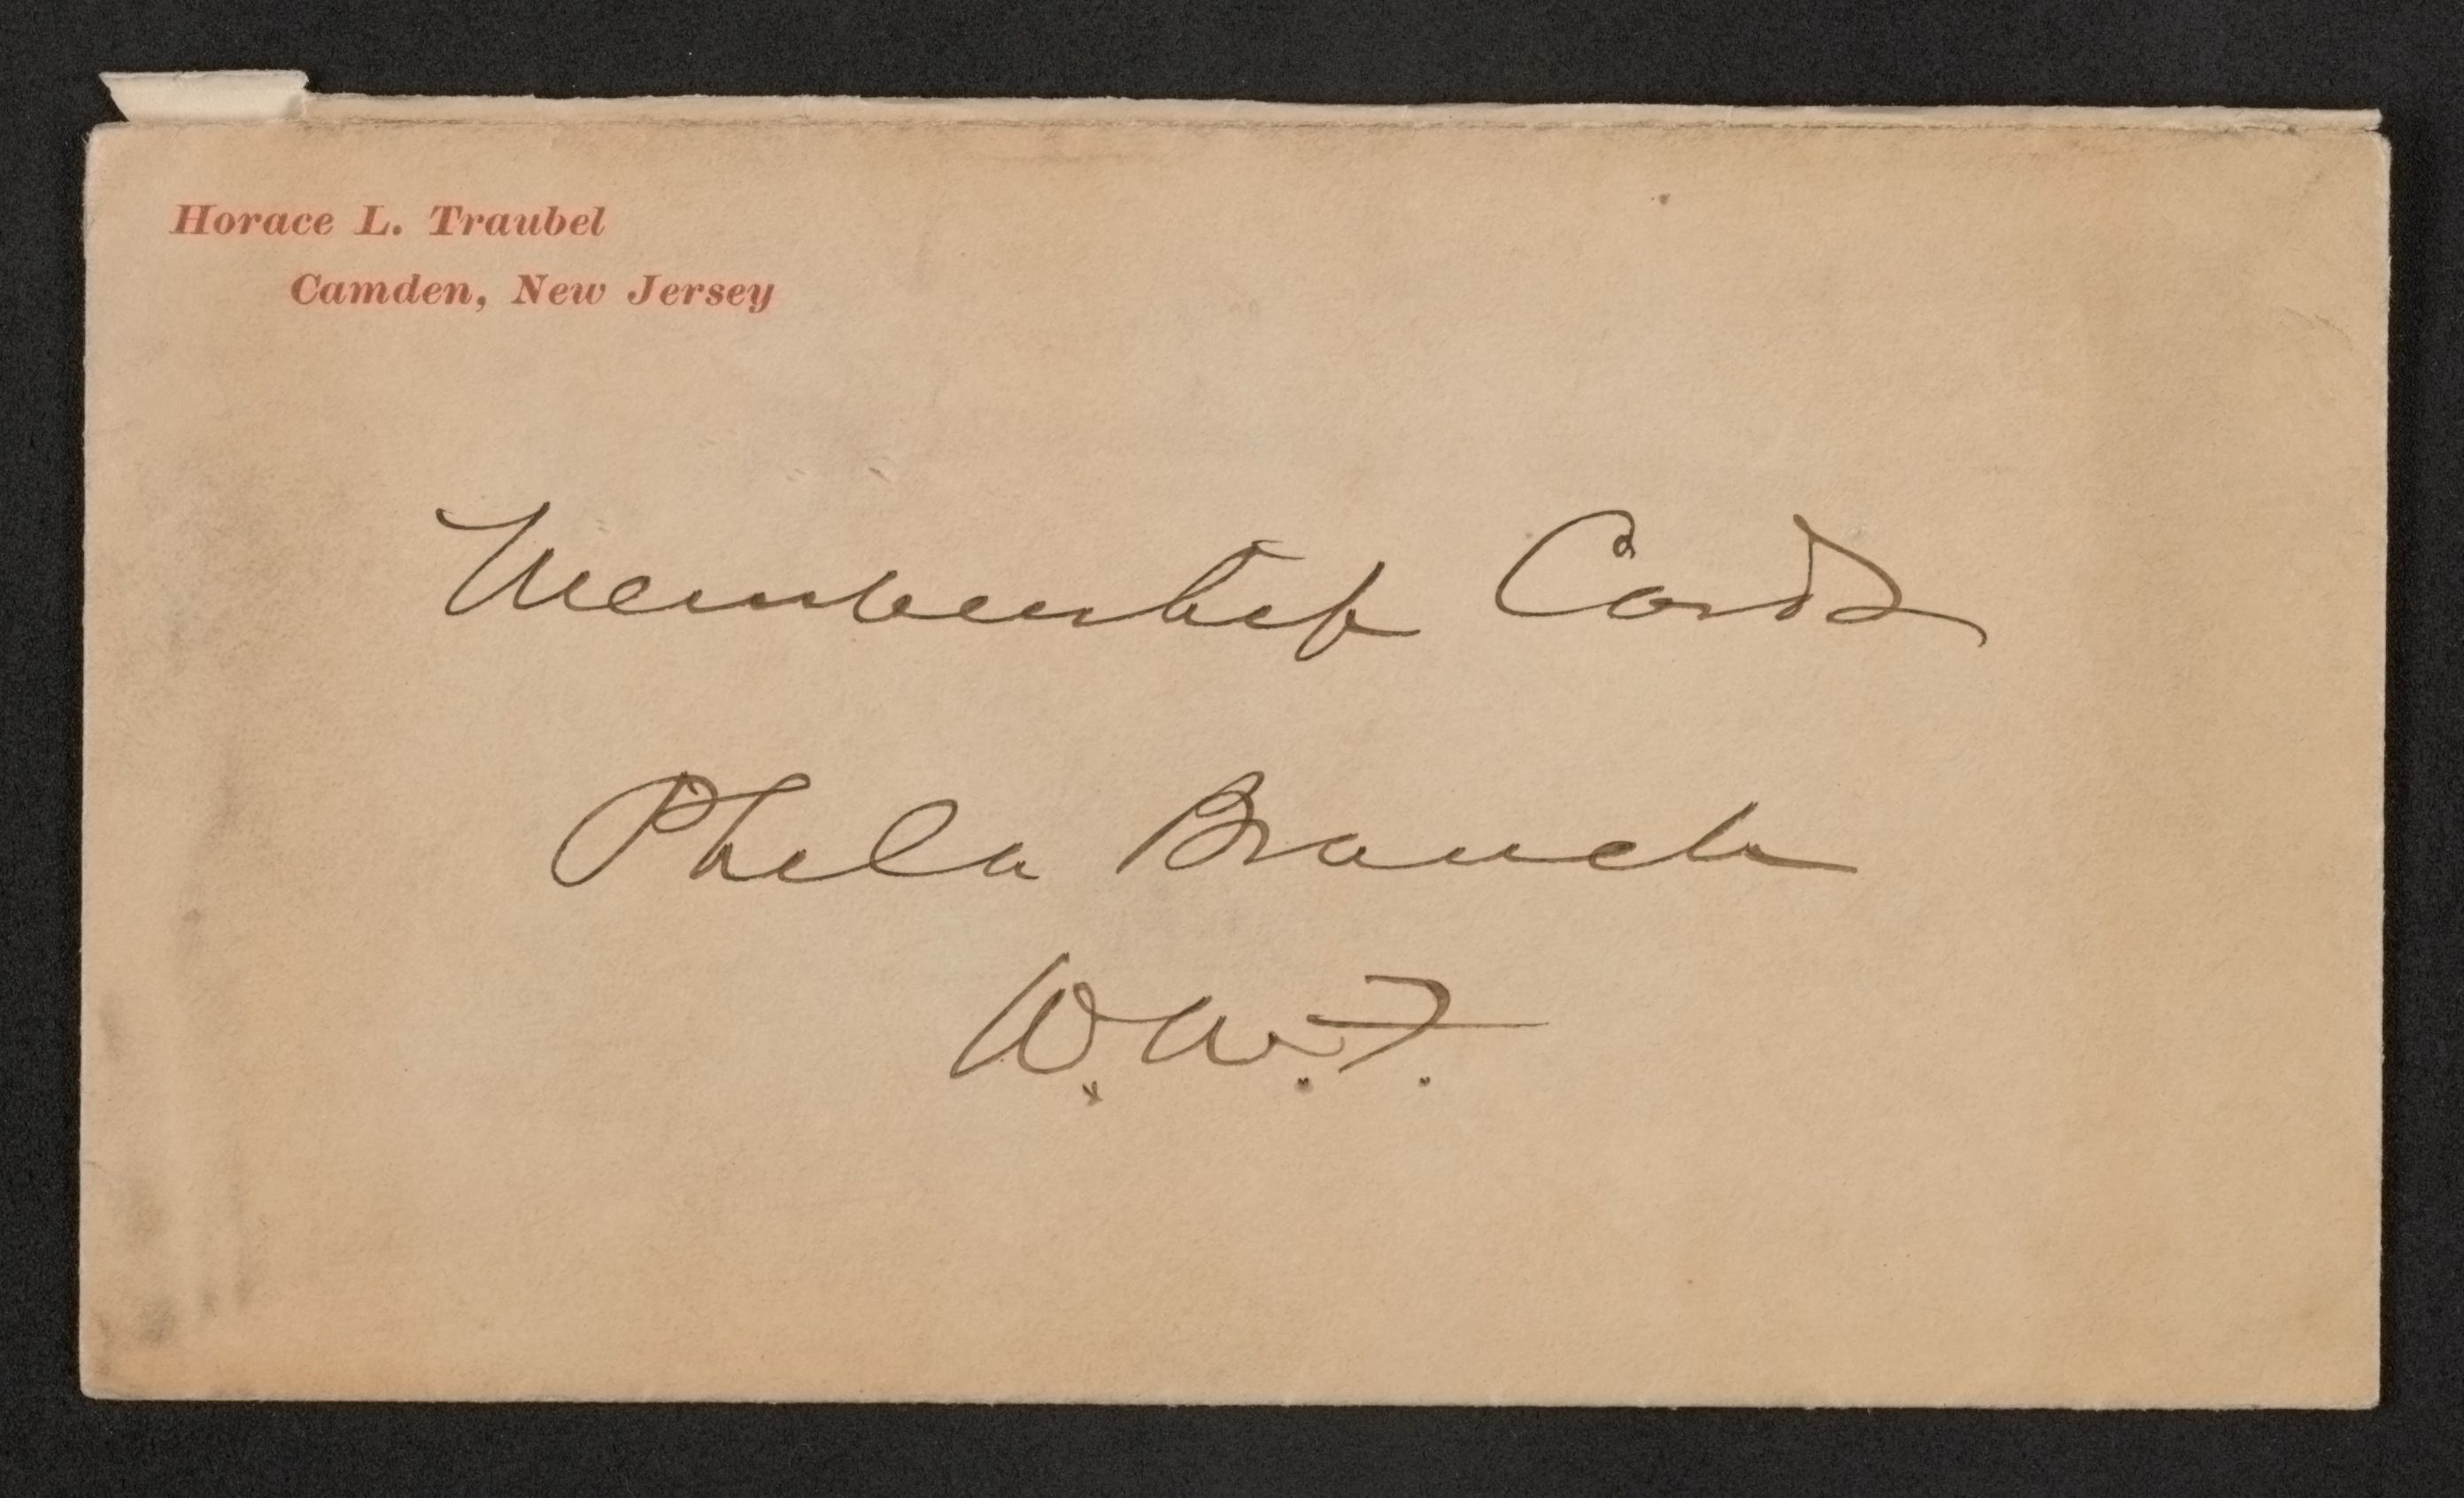 Horace L. Traubel
Camden, New Jersey
Membership Cards
Phila Branch
W. W. F.